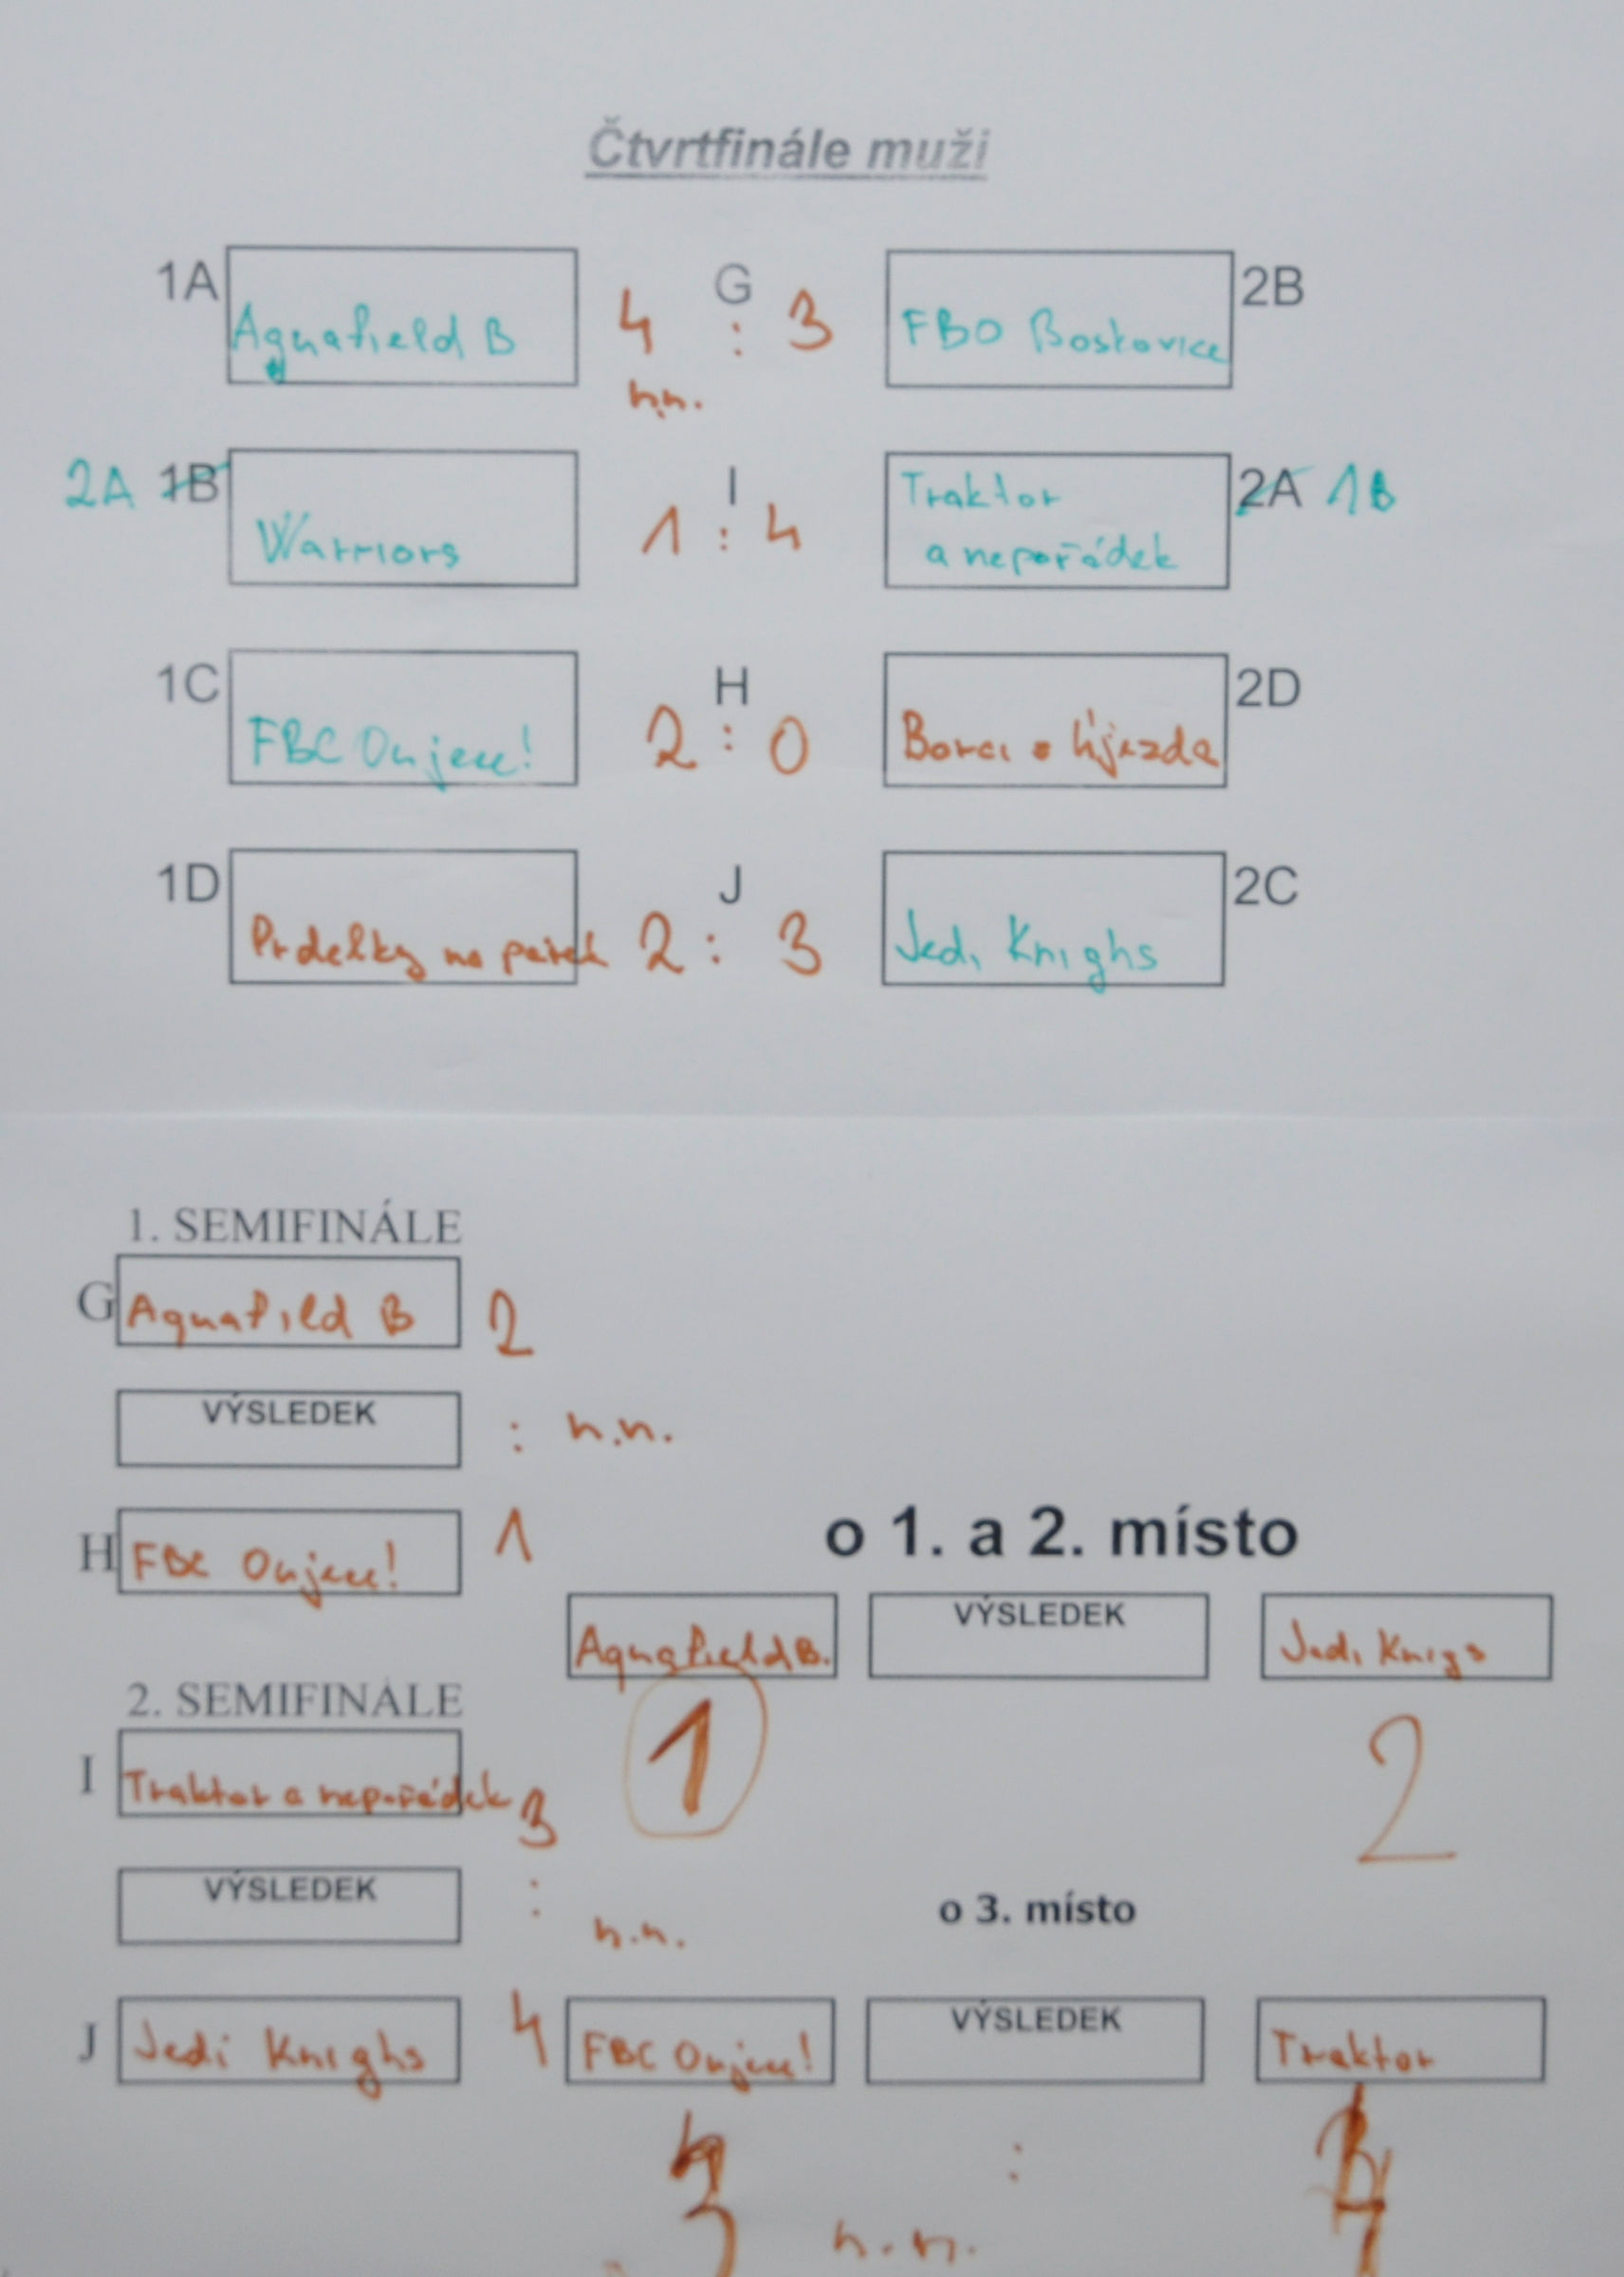 Čtvrtfinále muži
1A Aquafield B 4 G : 3 FBO Boskovice 2B
n.n.
2A 1B Warriors 1 I : 4 Traktor a nepořádek 2A 1B
1C FBC Onjeee! 2 H : 0 Borci z Újezda 2D
1D Prdelky na párek 2 J : 3 Jedi Knighs 2C
1. SEMIFINÁLE
G Aquafild B 2
VÝSLEDEK : n.n.
H FBC Onjeee! 1
o 1. a 2. místo
Aquafield B. VÝSLEDEK Jedi Knigs
1 2
2. SEMIFINÁLE
I Traktor a nepořádek 3
VÝSLEDEK : n.n.
J Jedi Knighs 4
o 3. místo
FBC Onjeee! VÝSLEDEK Traktor
3 : 4
n.n.